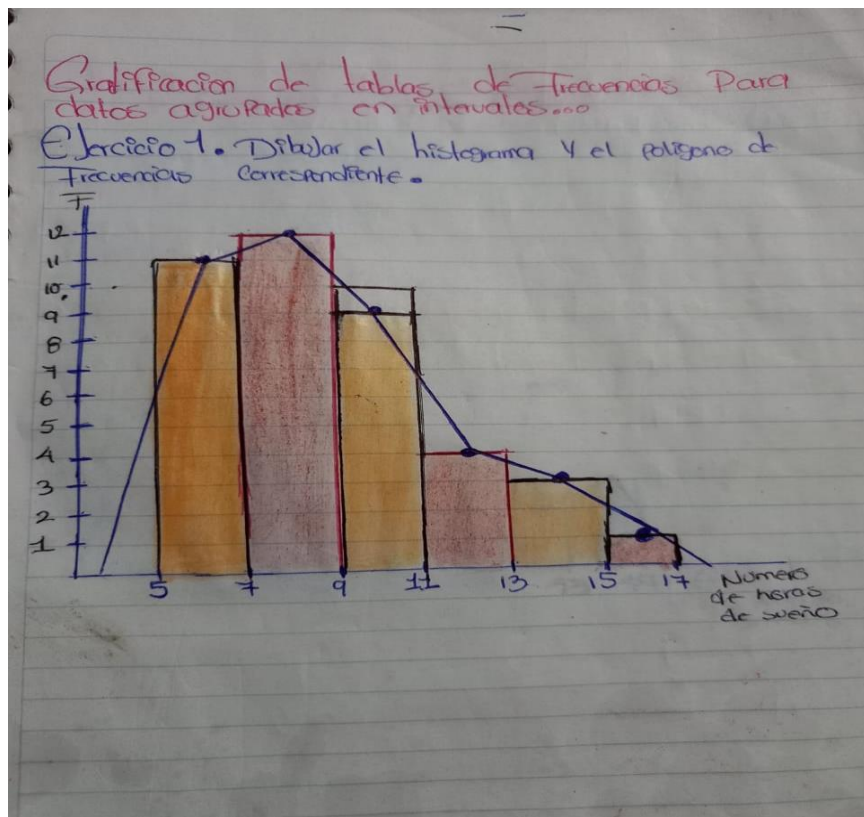 Gratificacion de tablas de Frecuencias Para
datos agrupados en intevales...
Ejercicio 1. Dibujar el histograma y el poligono de
Frecuencias Correspondiente.
F
12
11
10
9
8
7
6
5
4
3
2
1
5 7 9 11 13 15 17 Numero
de horas
de sueño